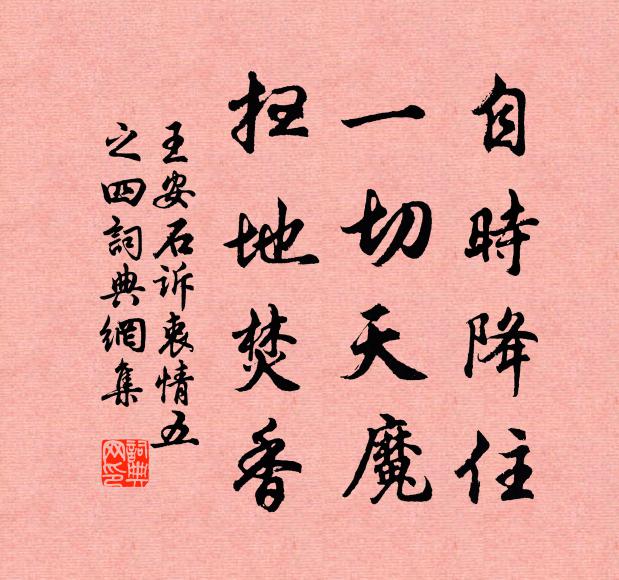 自時降住
一切天魔
扫地焚香
王安石诉衷情五
之四詞典網集
詞典
网印